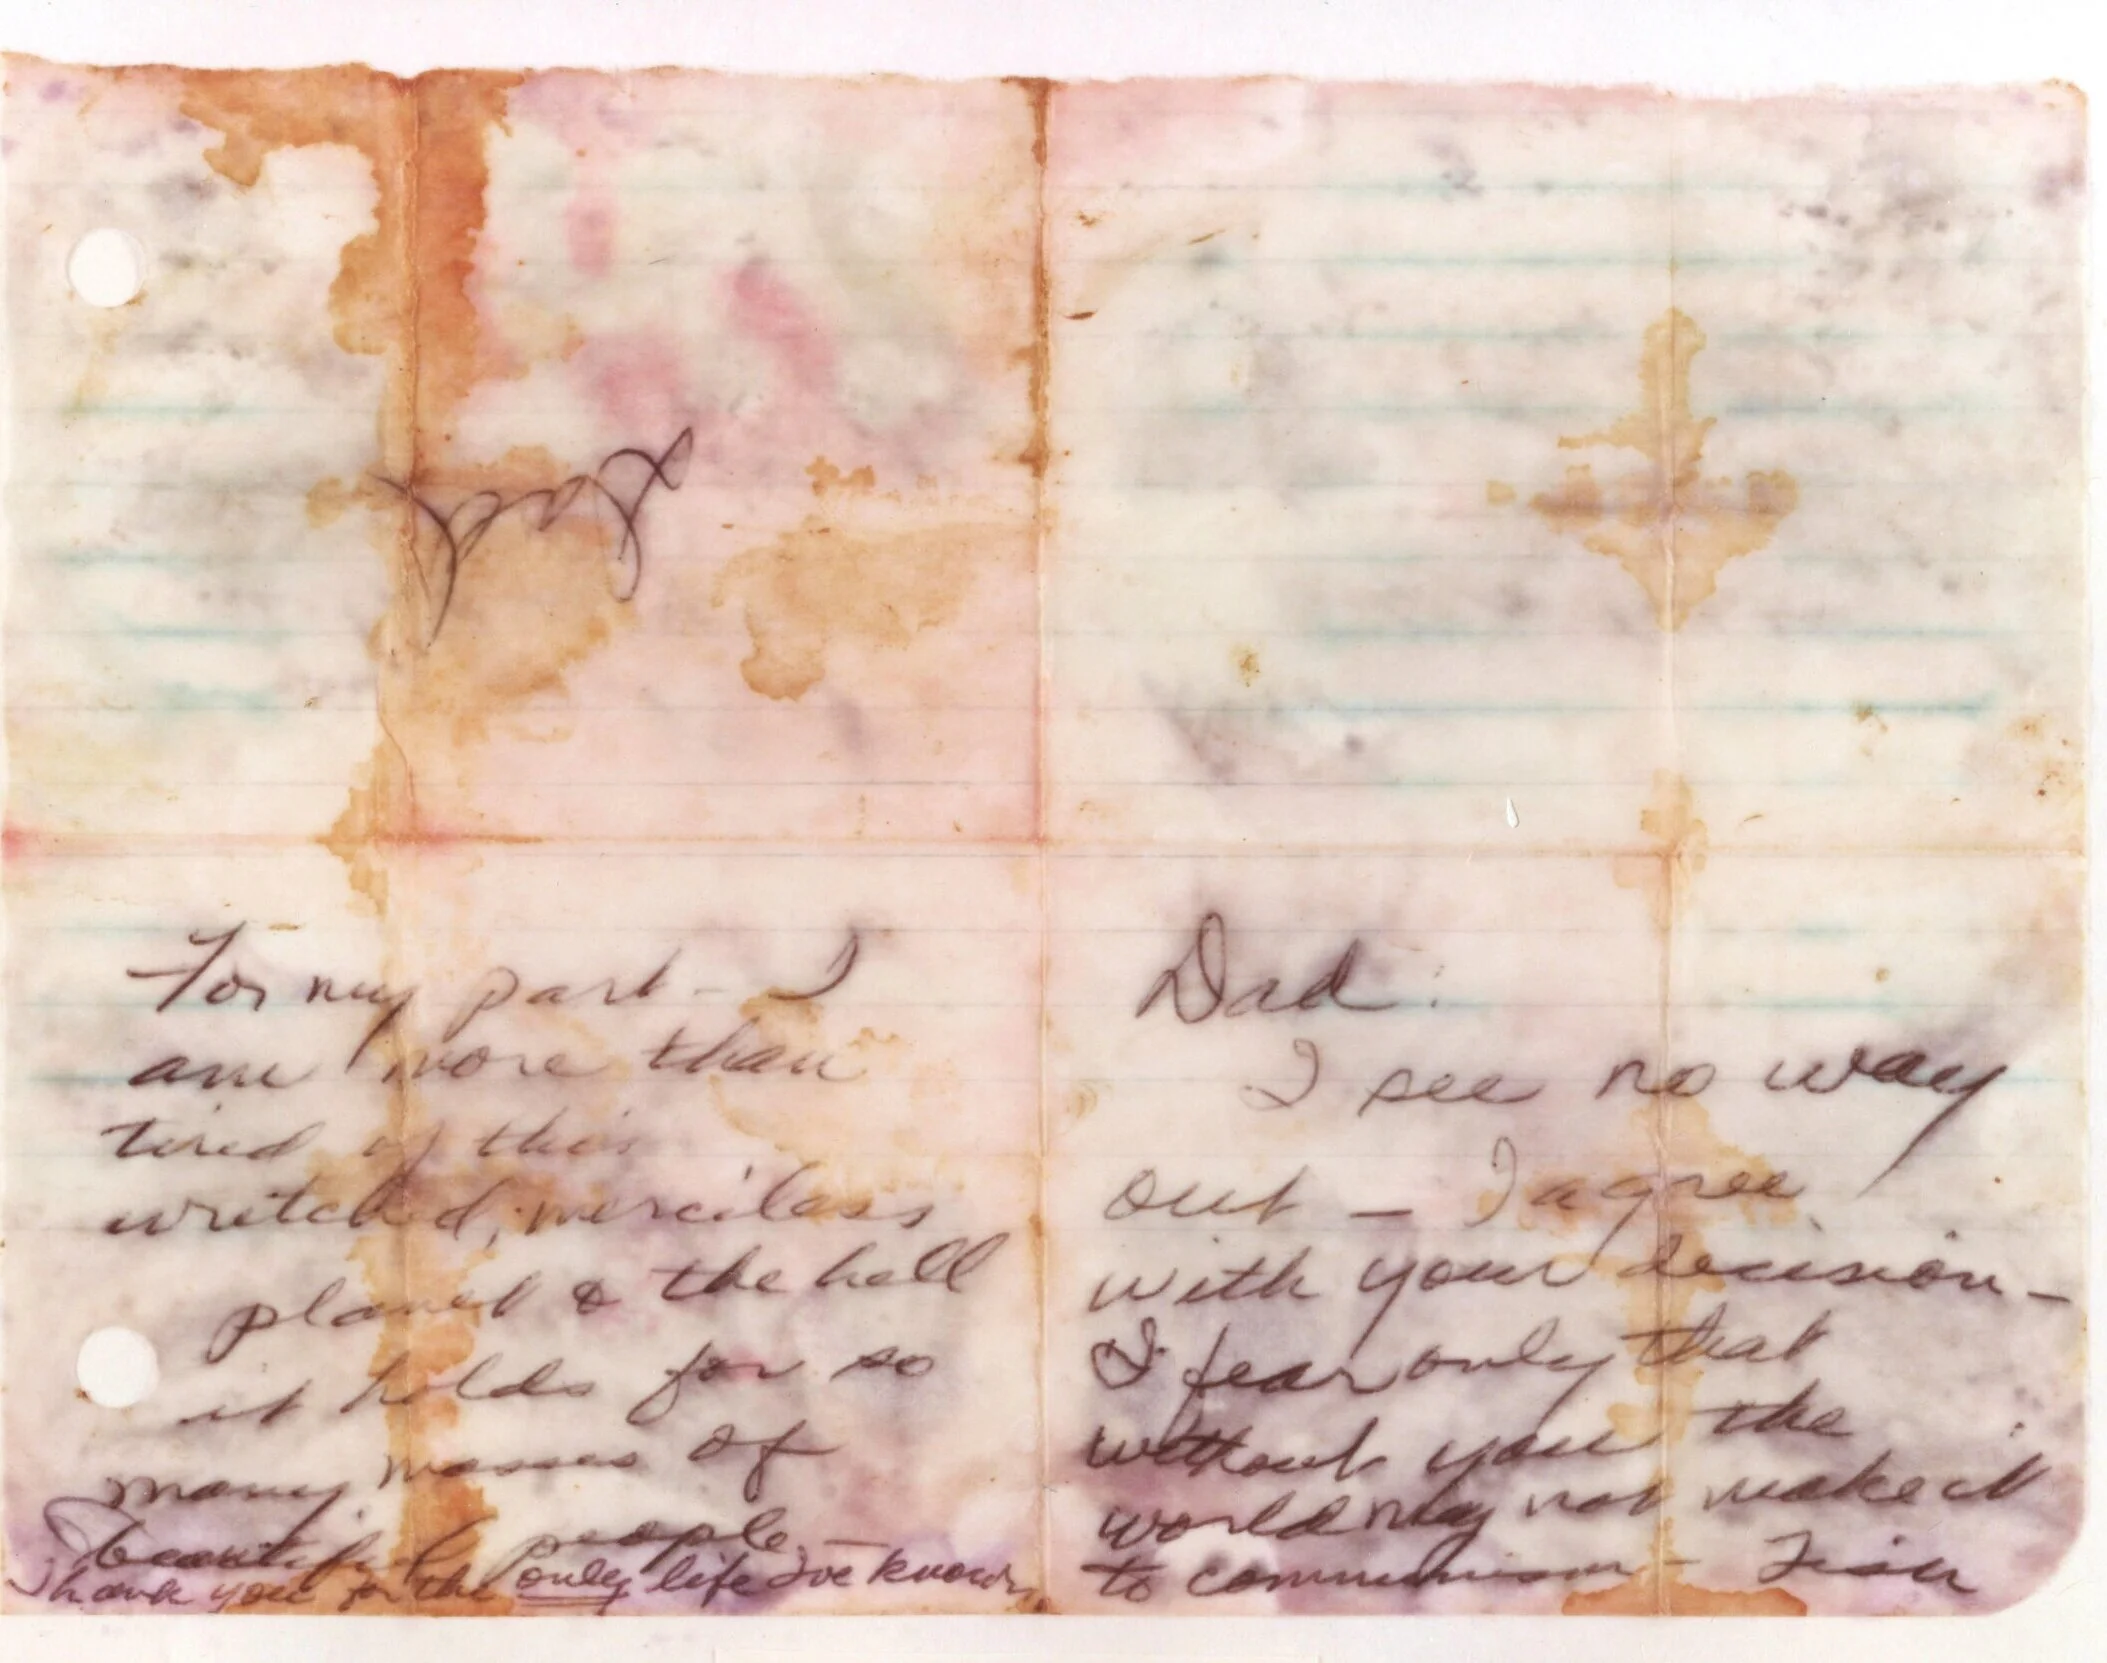 Dad
Dad:
I see no way
out - I agree
with your decision -
I fear only that
without you the
world may not make it
to communism -
For my part - I
am more than
tired of this
writched, merciless
planet & the hell
it holds for so
many masses of
beautiful people -
Thank you for the only life I've known.